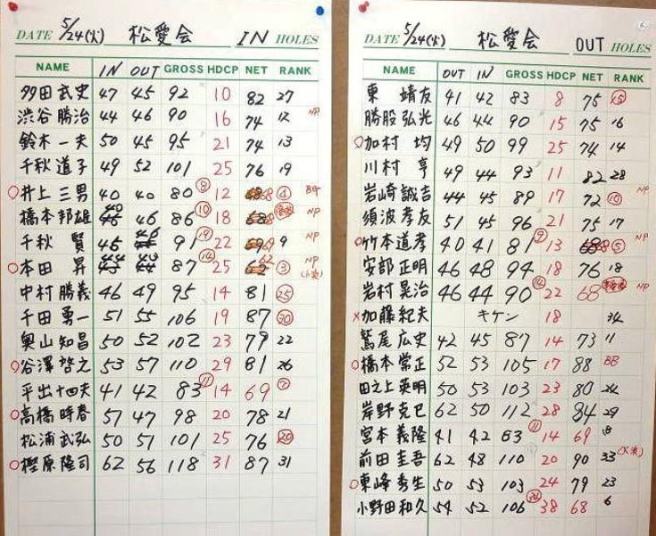 DATE 5/24(火) 松愛会 IN HOLES
NAME IN OUT GROSS HDCP NET RANK
多田武史 47 45 92 10 82 27
渋谷勝治 44 46 90 16 74 12 NP
鈴木一夫 50 45 95 21 74 13
千秋道子 49 52 101 25 76 19
井上三男 40 40 80 ⑧ 12 ④
橋本邦雄 46 86 ⑩ 18
千秋賢 45 91 22 9 NP
本田昇 87 25 ③
中村勝義 46 49 95 14 81 ㉕
千田勇一 51 55 106 19 87 ㉚
奥山知昌 50 52 102 23 79 22
谷澤啓之 53 57 110 29 81 26
平出十四夫 41 42 83 ⑪ 14 69 ⑦
高橋時春 51 47 98 20 78 21
松浦武弘 50 51 101 25 76 ⑳
樫原隆司 62 56 118 31 87 31
DATE 5/24(火) 松愛会 OUT HOLES
NAME OUT IN GROSS HDCP NET RANK
東靖友 41 42 83 8 75 ⑮
勝股弘光 46 44 90 15 75 16
加村均 49 50 99 25 74 14
川村亨 49 44 93 11 82 28
岩崎誠吉 44 45 89 17 72 ⑩ NP
須波孝友 51 45 96 21 75 17
竹本道孝 40 41 81 ⑨ 13 ⑤ NP
安部正明 46 48 94 18 76 18
岩村晃治 46 44 90 22 68 NP
×加藤紀夫 キケン 18 34
鷲尾広史 42 45 87 14 73 11
橋本常正 52 53 105 17 88 BB
田之上英明 50 53 103 23 80 24
岸野克巳 62 50 112 28 84 29
宮本義隆 41 42 83 ⑪ 14 69 8
前田圭吾 62 48 110 20 90 33
東峰秀生 50 53 103 24 79 23
小野田和久 54 52 106 38 68 6